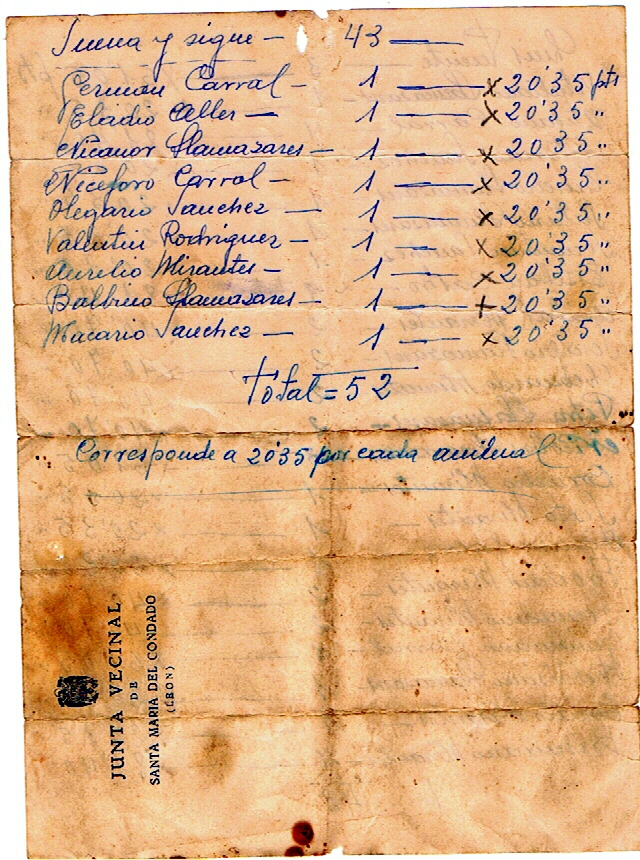 Suma y sigue — 43 —
German Carral — 1 — x 20'35 pts
Eladio Aller — 1 — x 20'35 "
Nicanor Llamazares — 1 — x 20'35 "
Niceforo Carral — 1 — x 20'35 "
Olegario Sanchez — 1 — x 20'35 "
Valentin Rodriguez — 1 — x 20'35 "
Aurelio Mirantes — 1 — x 20'35 "
Balbino Llamazares — 1 — + 20'35 "
Macario Sanchez — 1 x 20'35 "
Total = 52
Corresponde a 20'35 por cada animal
JUNTA VECINAL
DE
SANTA MARIA DEL CONDADO
(LEON)